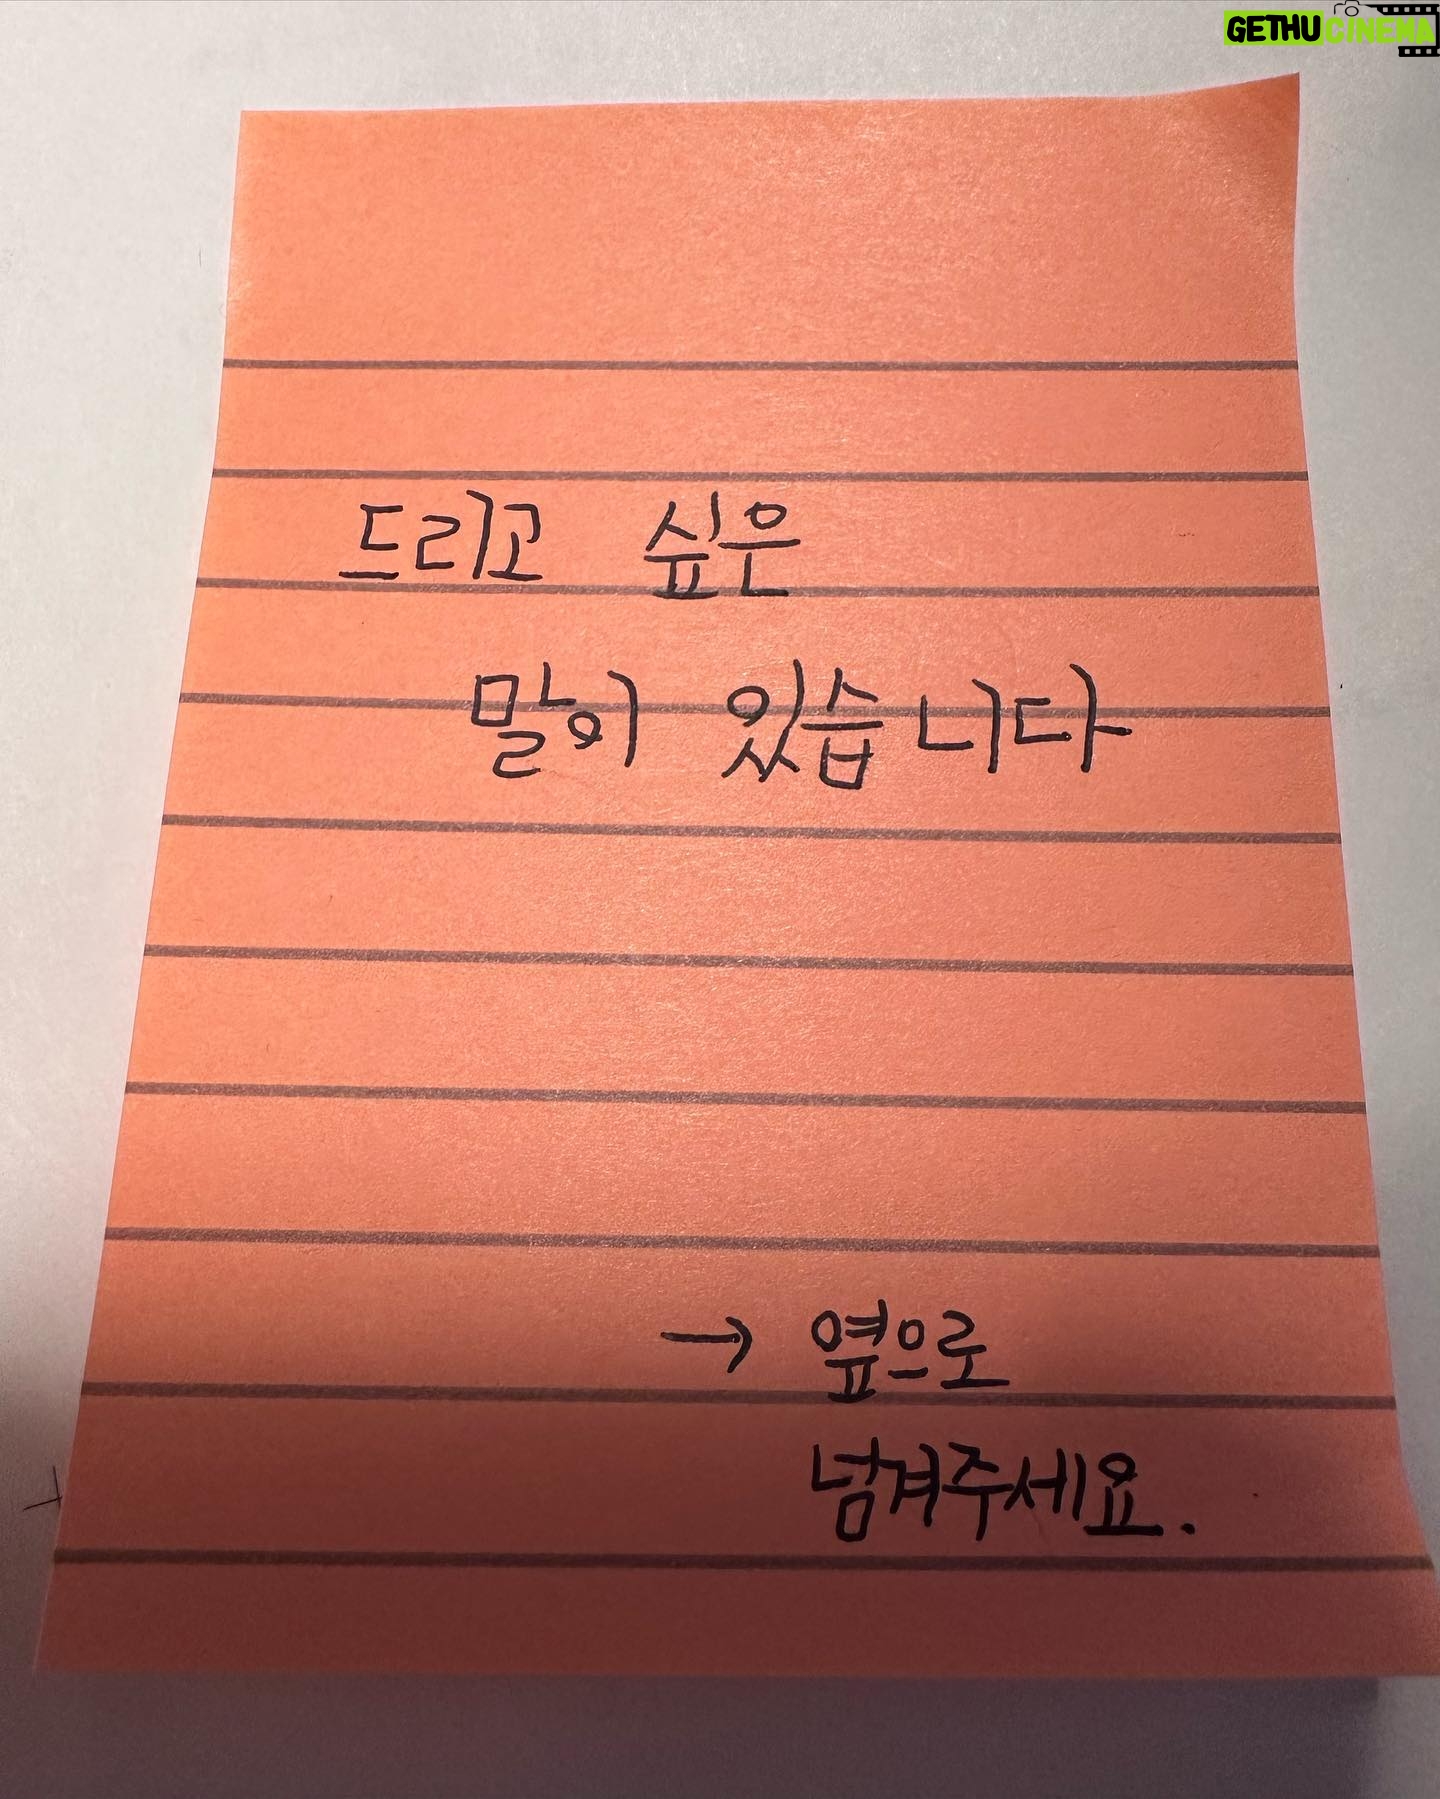 GETHUCINEMA
드리고 싶은
말이 있습니다
→ 옆으로
넘겨주세요.